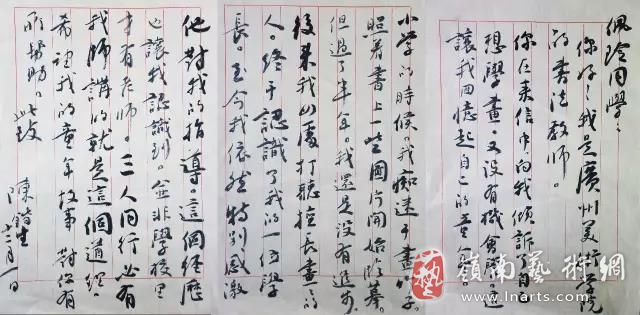 佩玲同學：
你好！我是廣州美術學院
的書法教師。
你在來信中向我傾訴了自己
想學畫，又没有機會學。這
讓我回憶起自己的童年。
小学的時候，我痴迷于畫竹子。
照着書上一些圖片開始臨摹。
但過了半年。我還是没有進步。
後來我四處打聽擅長畫的
人。終于認識了我的一位學
長。至今我依然特别感激
他對我的指導。這個經歷
也讓我認識到。並非學校裡
才有老師。三人同行必有
我師講的就是這個道理。
希望我的童年故事 對你有
所幫助。此致
陳
十二月一日
藝
嶺南藝術網
www.lnarts.com